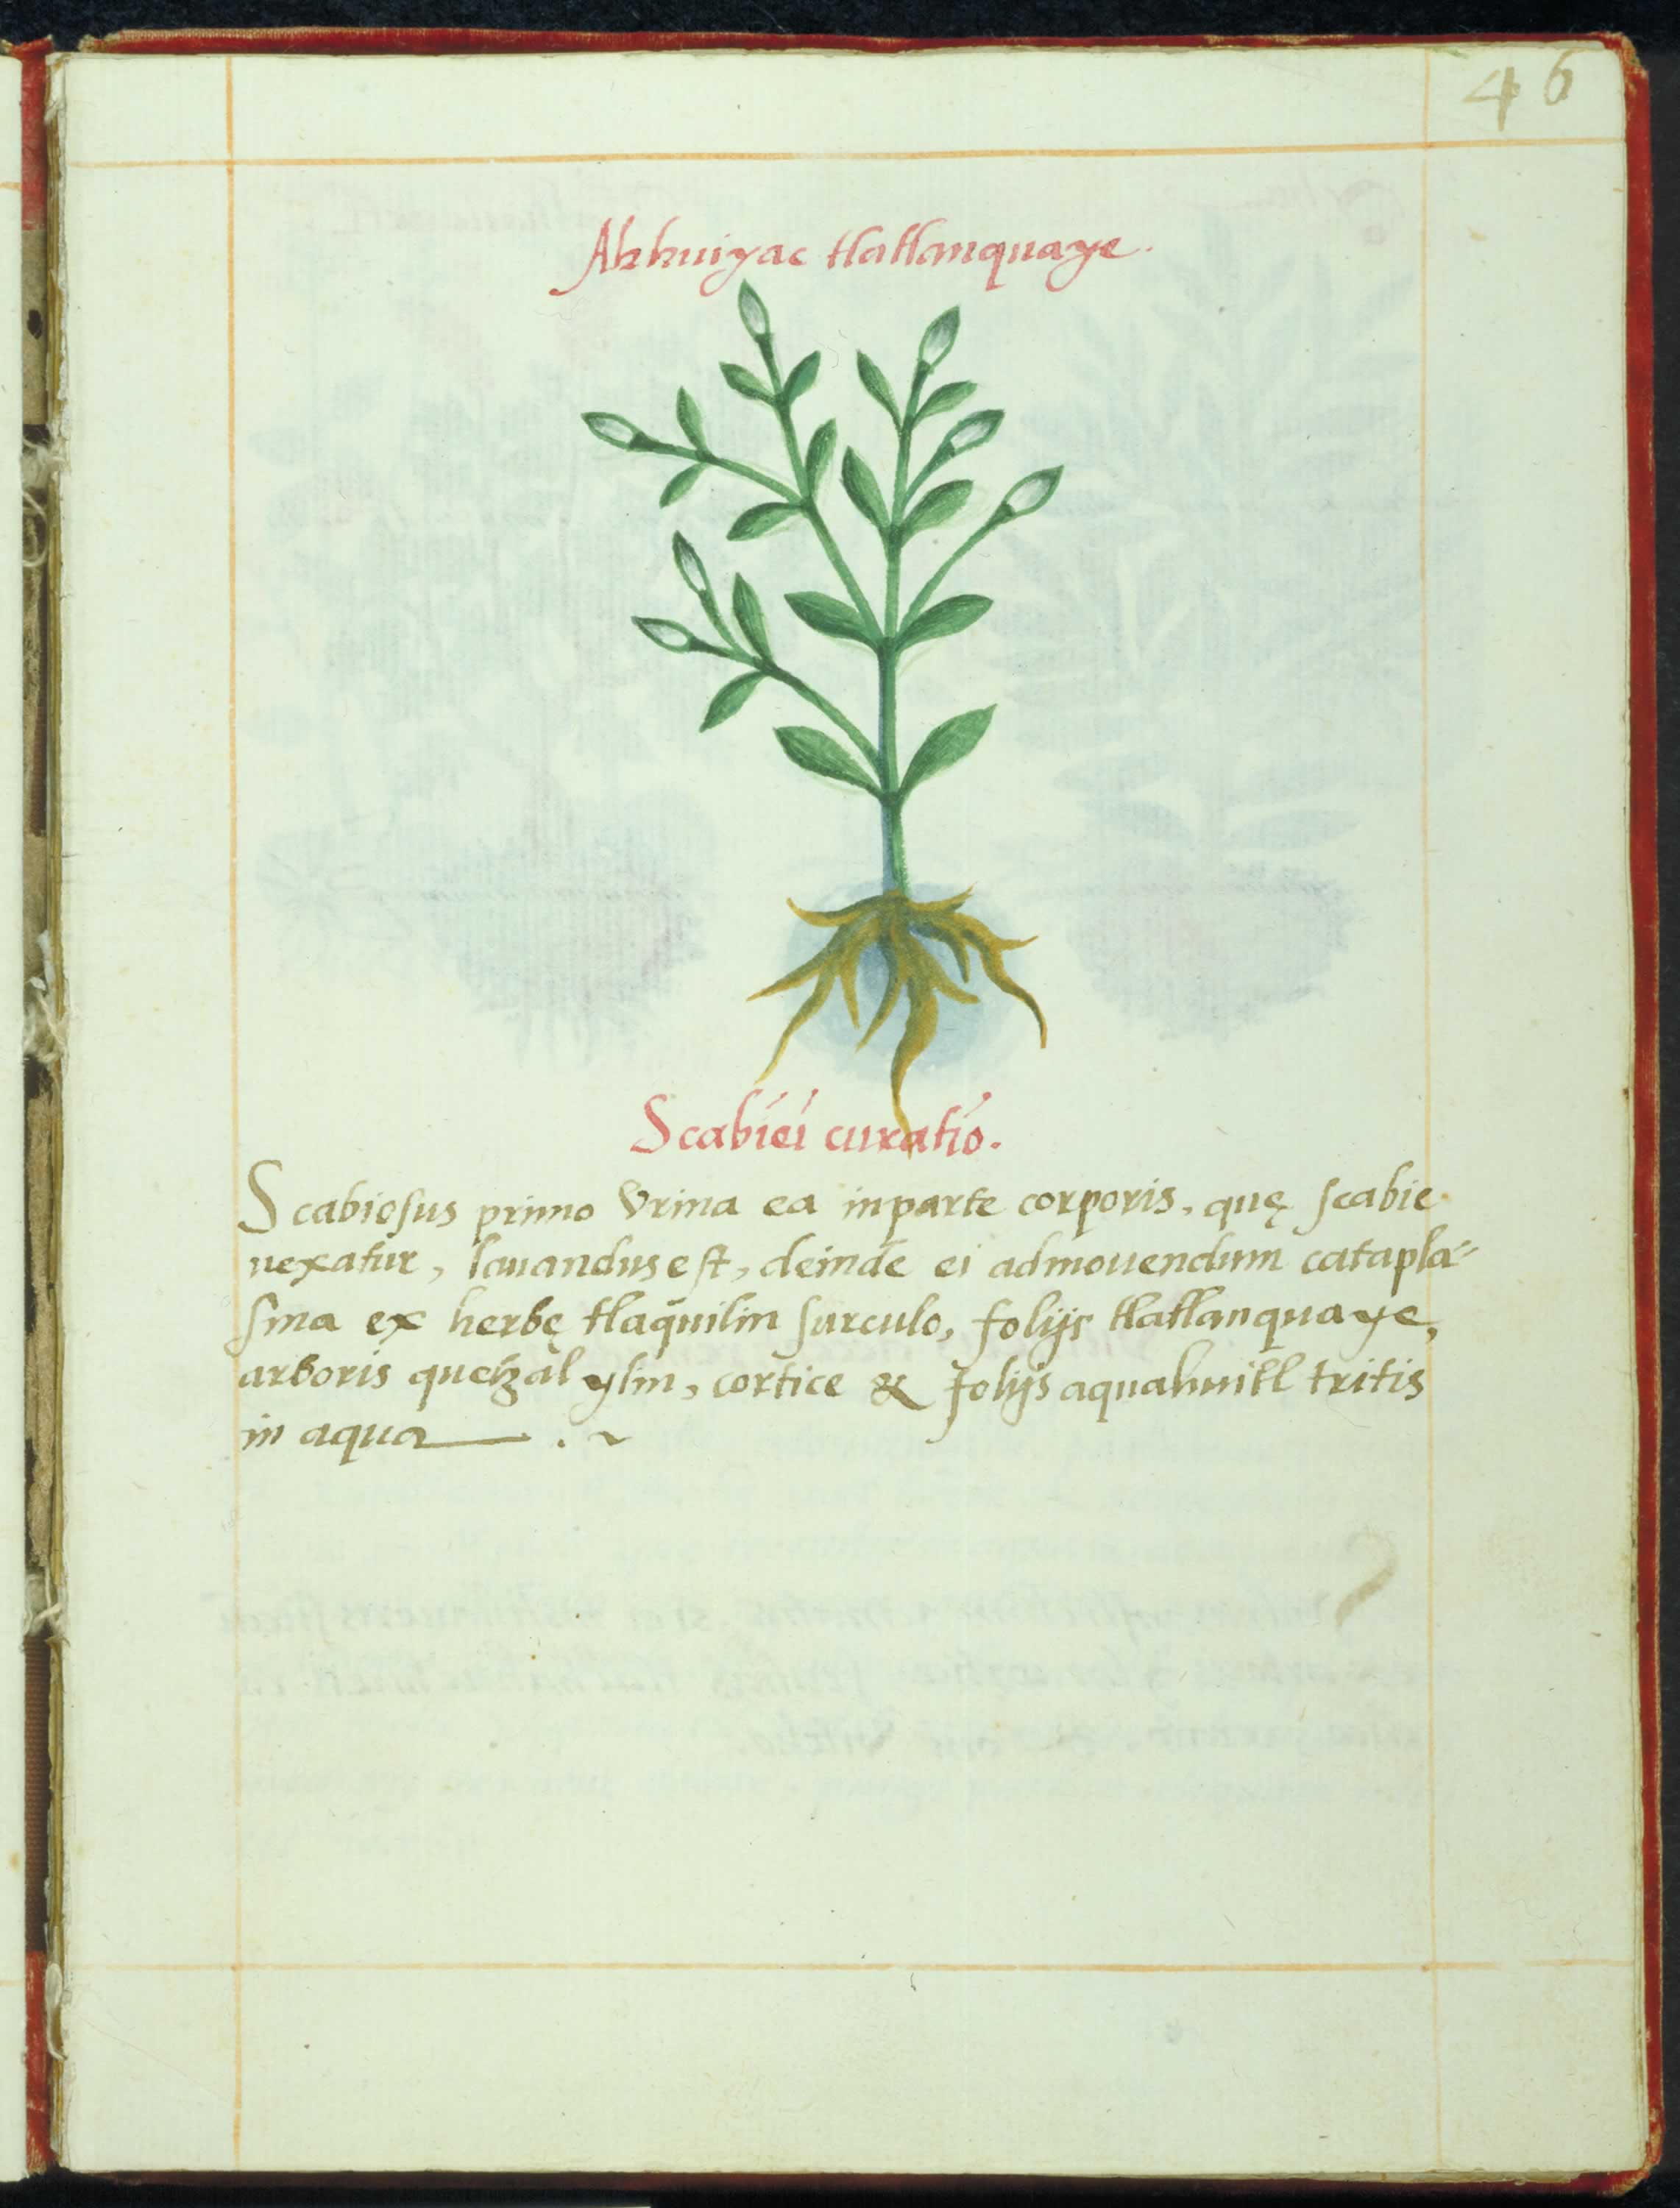 46
Ahhuiyac tlatlanquaye.
Scabiei curatio.
Scabiosus primo Vrina ea in parte corporis, quę scabie
uexatur, lauandus est, deinde ei admouendum catapla-
sma ex herbę tlaquilin surculo, folijs tlatlanquaye,
arboris quetzal ylin, cortice & folijs aquahuitl tritis
in aqua